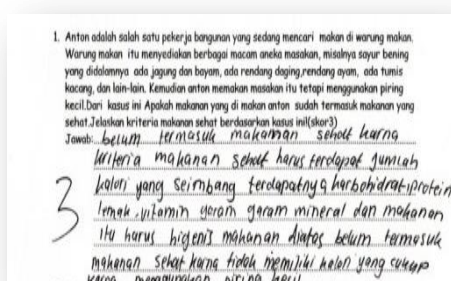 1. Anton adalah salah satu pekerja bangunan yang sedang mencari makan di warung makan.
Warung makan itu menyediakan berbagai macam aneka masakan, misalnya sayur bening
yang didalamnya ada jagung dan bayam, ada rendang daging,rendang ayam, ada tumis
kacang, dan lain-lain. Kemudian anton memakan masakan itu tetapi menggunakan piring
kecil.Dari kasus ini Apakah makanan yang di makan anton sudah termasuk makanan yang
sehat.Jelaskan kriteria makanan sehat berdasarkan kasus ini!(skor3)
Jawab: belum termasuk makanan sehat karna
kriteria makanan sehat harus terdapat jumlah
kalori yang seimbang terdapatnya karbohidrat, protein
3 lemak, vitamin garam garam mineral dan makanan
itu harus higenis makanan diatas belum termasuk
makanan sehat karna tidak memiliki kalori yang cukup
karna menggunakan piring kecil